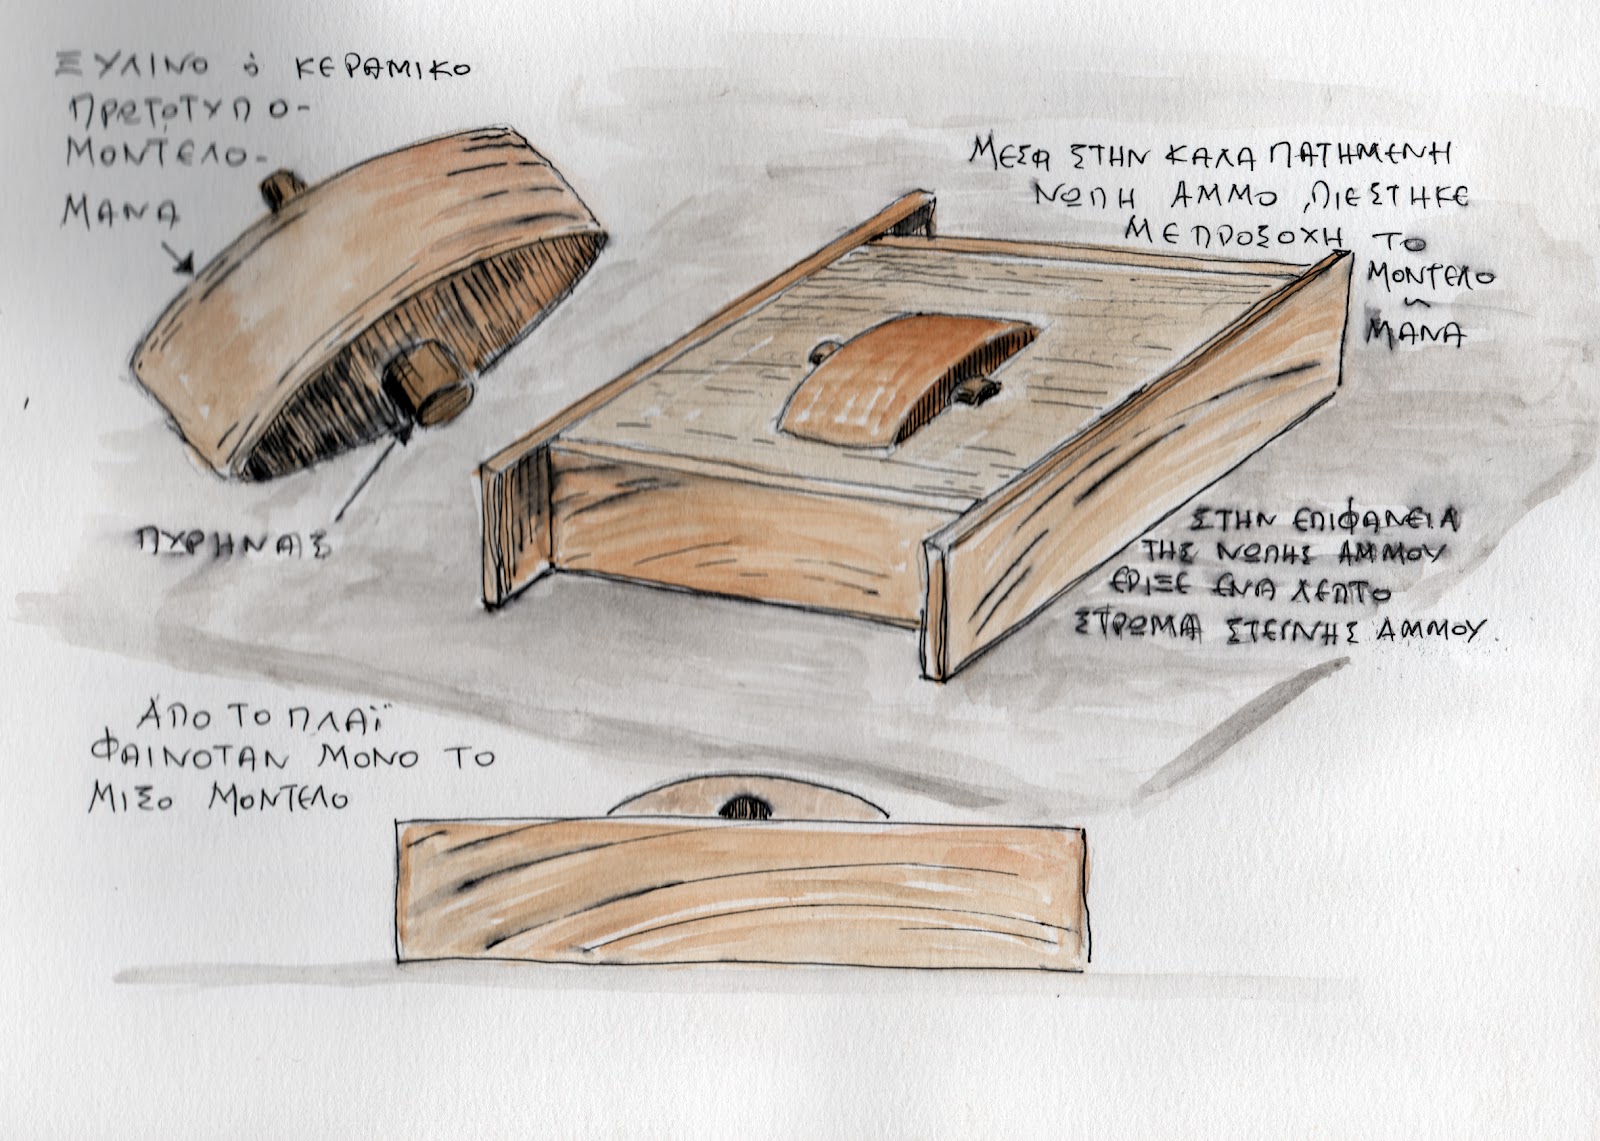 ΞΥΛΙΝΟ ό ΚΕΡΑΜΙΚΟ
ΠΡΩΤΟΤΥΠΟ-
ΜΟΝΤΕΛΟ-
ΜΑΝΑ
ΠΥΡΗΝΑΣ
ΜΕΣΑ ΣΤΗΝ ΚΑΛΑ ΠΑΤΗΜΕΝΗ
ΝΩΠΗ ΑΜΜΟ, ΠΙΕΣΤΗΚΕ
ΜΕ ΠΡΟΣΟΧΗ ΤΟ
ΜΟΝΤΕΛΟ
~
ΜΑΝΑ
ΣΤΗΝ ΕΠΙΦΑΝΕΙΑ
ΤΗΣ ΝΩΠΗΣ ΑΜΜΟΥ
ΕΡΙΞΕ ΕΝΑ ΛΕΠΤΟ
ΣΤΡΩΜΑ ΣΤΕΓΝΗΣ ΑΜΜΟΥ.
ΑΠΟ ΤΟ ΠΛΑΪ
ΦΑΙΝΟΤΑΝ ΜΟΝΟ ΤΟ
ΜΙΣΟ ΜΟΝΤΕΛΟ